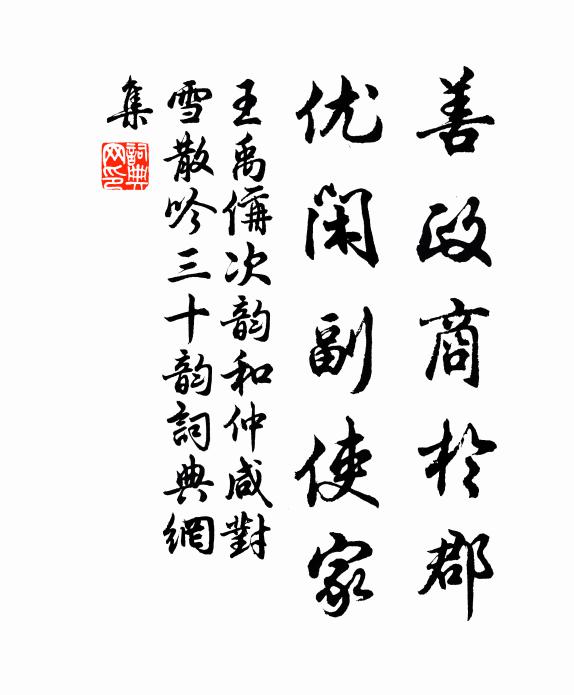 善政商於郡
优闲副使家
王禹偁次韵和仲咸對
雪散吟三十韵詞典網
集
詞典
网印